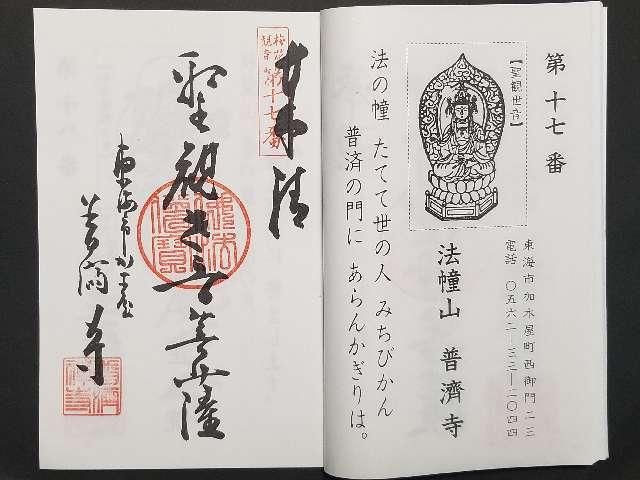 第十七番
【聖観世音】
東海市加木屋町西御門二三
電話 〇五六二―三三―二〇四四
法幢山 普濟寺
法の幢 たてて世の人 みちびかん
普済の門に あらんかぎりは。
奉拝
第十七番
聖観世音菩薩
東海市加木屋
普濟寺